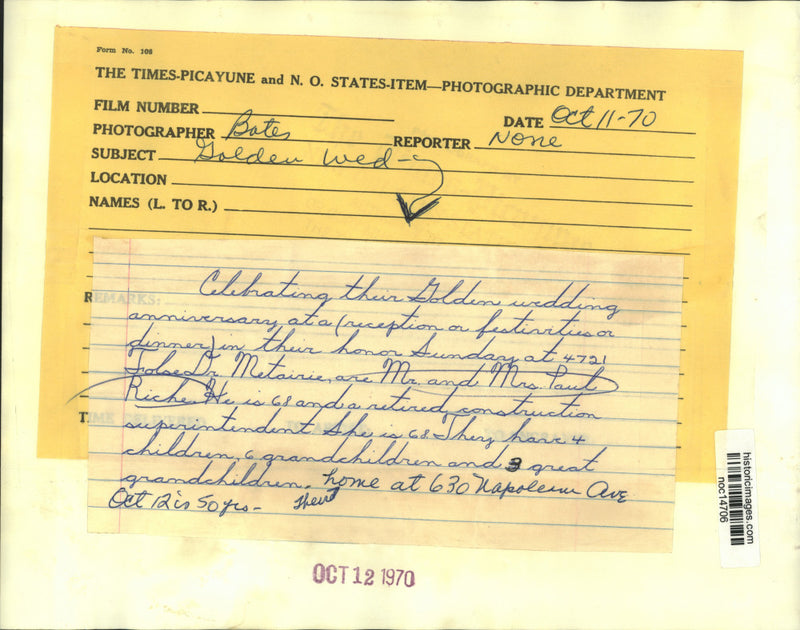 Form No. 108
THE TIMES-PICAYUNE and N. O. STATES-ITEM—PHOTOGRAPHIC DEPARTMENT
FILM NUMBER
DATE Oct 11-70
PHOTOGRAPHER Bates
REPORTER None
SUBJECT Golden Wed-g
LOCATION
NAMES (L. TO R.)
REMARKS:
Celebrating their Golden wedding
anniversary at a (reception or festivities or
dinner) in their honor Sunday at 4721
Folse Dr. Metairie, are Mr. and Mrs. Paul
Riche. He is 68 and a retired construction
superintendent She is 68. They have 4
children, 6 grandchildren and 3 great
grandchildren. home at 630 Napoleon Ave
Oct 12 is 50 yrs- Their
OCT 12 1970
historicimages.com
noc14706